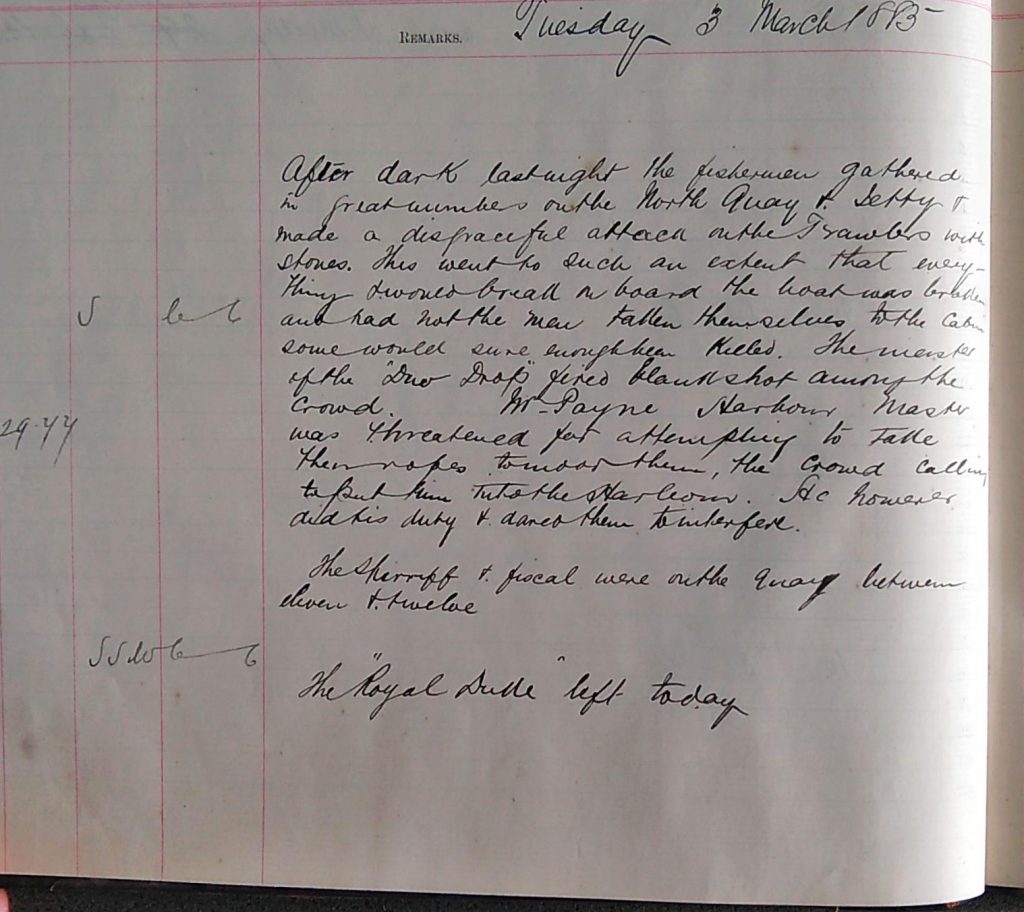 REMARKS.
Tuesday 3 March 1885
After dark last night the fishermen gathered
in great numbers on the North Quay & Jetty &
made a disgraceful attack on the Trawlers with
stones. This went to such an extent that every-
thing would break on board the boat was broken
and had not the men taken themselves to the Cabin
S
some would sure enough been Killed. The master
of the "Dew Drop" fired blank shot among the
Crowd. Mr Payne Harbour Master
29.44
was threatened for attempting to take
their ropes to moor them, the crowd calling
to put him into the Harbour. He however
did his duty & dared them to interfere.
The Shirriff & fiscal were on the Quay between
eleven & twelve
SSW
The "Royal Duke" left today